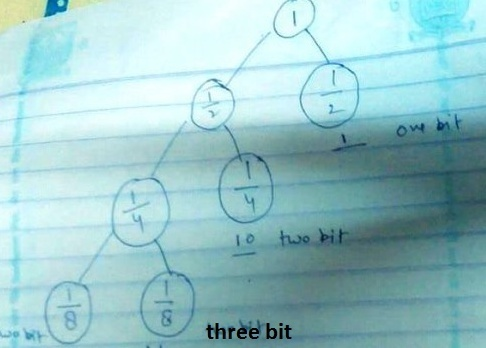 1
1/2 1/2
1 one bit
1/4 1/4
10 two bit
1/8 1/8
three bit